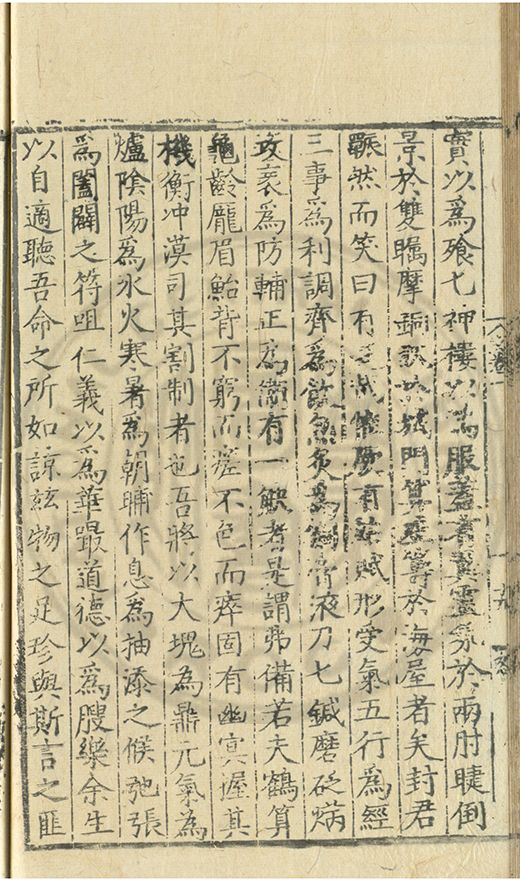 實以爲飧七神樓以爲服蓋者翼靈氛於兩肘睫倒
景於雙矚摩銅於城門算籌於海屋者矣封君
囅然而笑曰有有賦形受氣五行爲經
三事爲利調齊爲飲爲液刀七鍼磨砭焫
攻衺爲防輔正爲衞有一觖者是謂弗備若夫鶴算
龜齡龎眉鮐背不窮而瘥不色而瘁固有幽冥握其
機衡冲漠司其割制者也吾將以大塊為鼎元氣為
爐隂陽爲水火寒暑爲朝晡作息爲抽添之候弛張
爲闔闢之符咀仁義以爲華㝡道德以爲腴樂余生
以自適聽吾命之所如諒兹物之足珍與斯言之匪